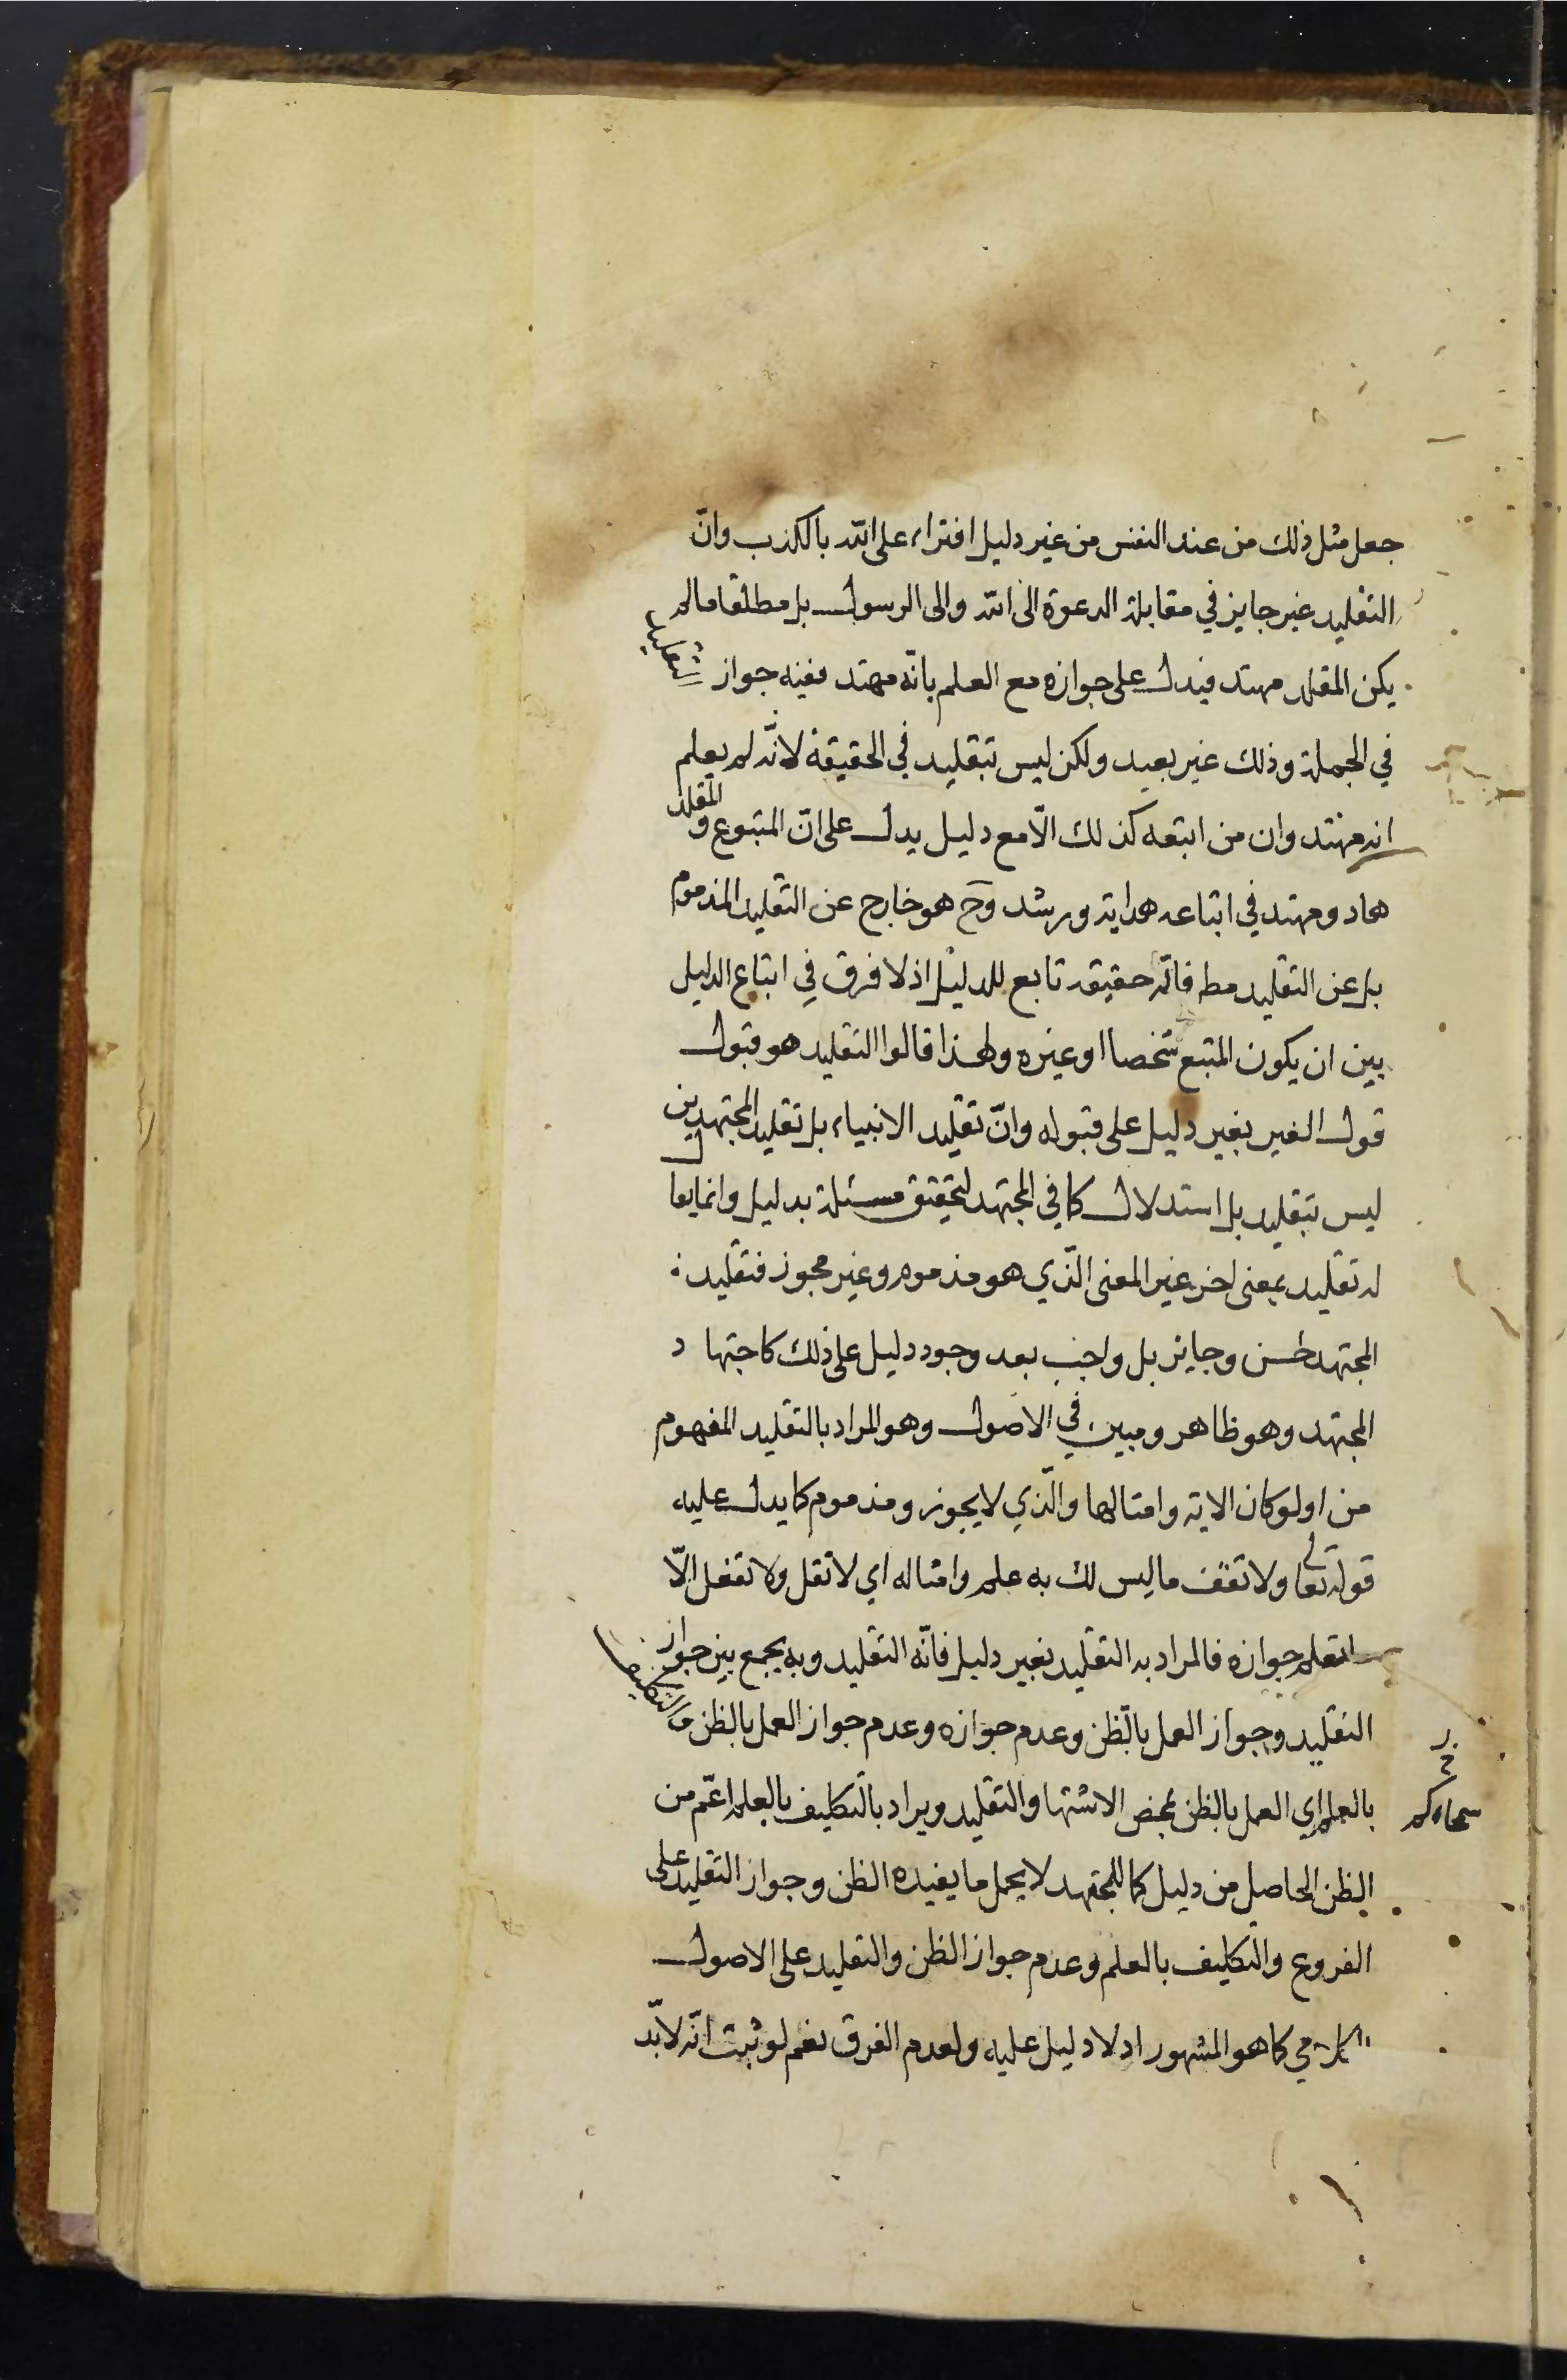 جعل مثل ذلك من عند النفس من غير دليل افتراء على الله بالكذب وانّ
التقليد غير جايز في مقابلة الدعوة الى الله والى الرسول بل مطلقا ما لم
يكن المقلد مهتد فيدل على جوازه مع العلم بانّه مهتد ففيه جواز التقليد
في الجملة وذلك غير بعيد ولكن ليس تبقليد في الحقيقة لانّه لم يعلم
انه مهتد وان من ابتعه كذلك الّا مع دليل يدل على انّ المتبوع و المقلد
هاد ومهتد في ابتاعه هداية ورشد وح هو خارج عن التقليد المذموم
بل عن التقليد مط فانّه حقيقة تابع للدليل اذ لا فرق في ابتاع الدليل
بين ان يكون المتبع شخصا او غيره ولهذا قالوا التقليد هو قبول
قول الغير بغير دليل على قبوله وانّ تقليد الانبياء بل تقليد المجتهدين
ليس تبقليد بل استدلال كما في المجتهد لتحقيق مسئلة بدليل وانما يقا
له تقليد بمعنى اخر غير المعنى الّذي هو مذموم وغير مجوز فتقليد
المجتهد حسن وجايز بل واجب بعد وجود دليل على ذلك كاجتها د
المجتهد وهو ظاهر ومبين في الاصول وهو المراد بالتقليد المفهوم
من اولو كان الاية وامثالها والّذي لا يجوز ومذموم كما يدل عليه
قوله تعالى ولا تقف ما ليس لك به علم وامثاله اي لا تقل ولا تفعل الّا
ما تعلم جوازه فالمراد به التقليد بغير دليل فانّه التقليد وبه يجمع بين جواز
التقليد وجواز العمل بالّظن وعدم جوازه وعدم جواز العمل بالظن والتكليف
بالعلم اي العمل بالظن بمحض الاشتها والتقليد ويراد بالتكليف بالعلم اعّم من
الظن الحاصل من دليل كما للمجتهد لا يحمل ما يفيده الظن وجواز التقليد على
الفروع والتكليف بالعلم وعدم جواز الظن والتقليد على الاصول
الكلامي كما هو المشهور اذ لا دليل عليه ولعدم الفرق نعم لو ثبت انّه لابّد